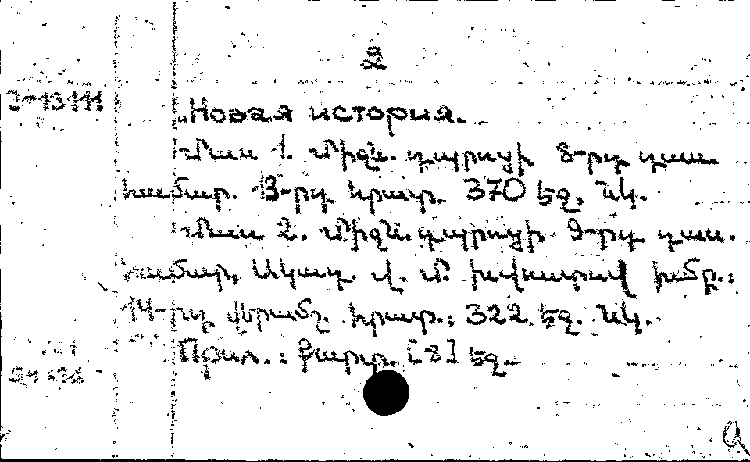 2
Новая история.
Մաս 1. Միջն. դպրոցի 8-րդ դաս.
համար. 13-րդ հրատ. 370 եջ. նկ.
Մաս 2. Միջն. դպրոցի 9-րդ դաս.
համար, Ակադ. Ա. Մ. խմբ.:
14-րդ վերամշ. հրատ.: 322 եջ. նկ.
Прил.: քարտ. [8] եջ.